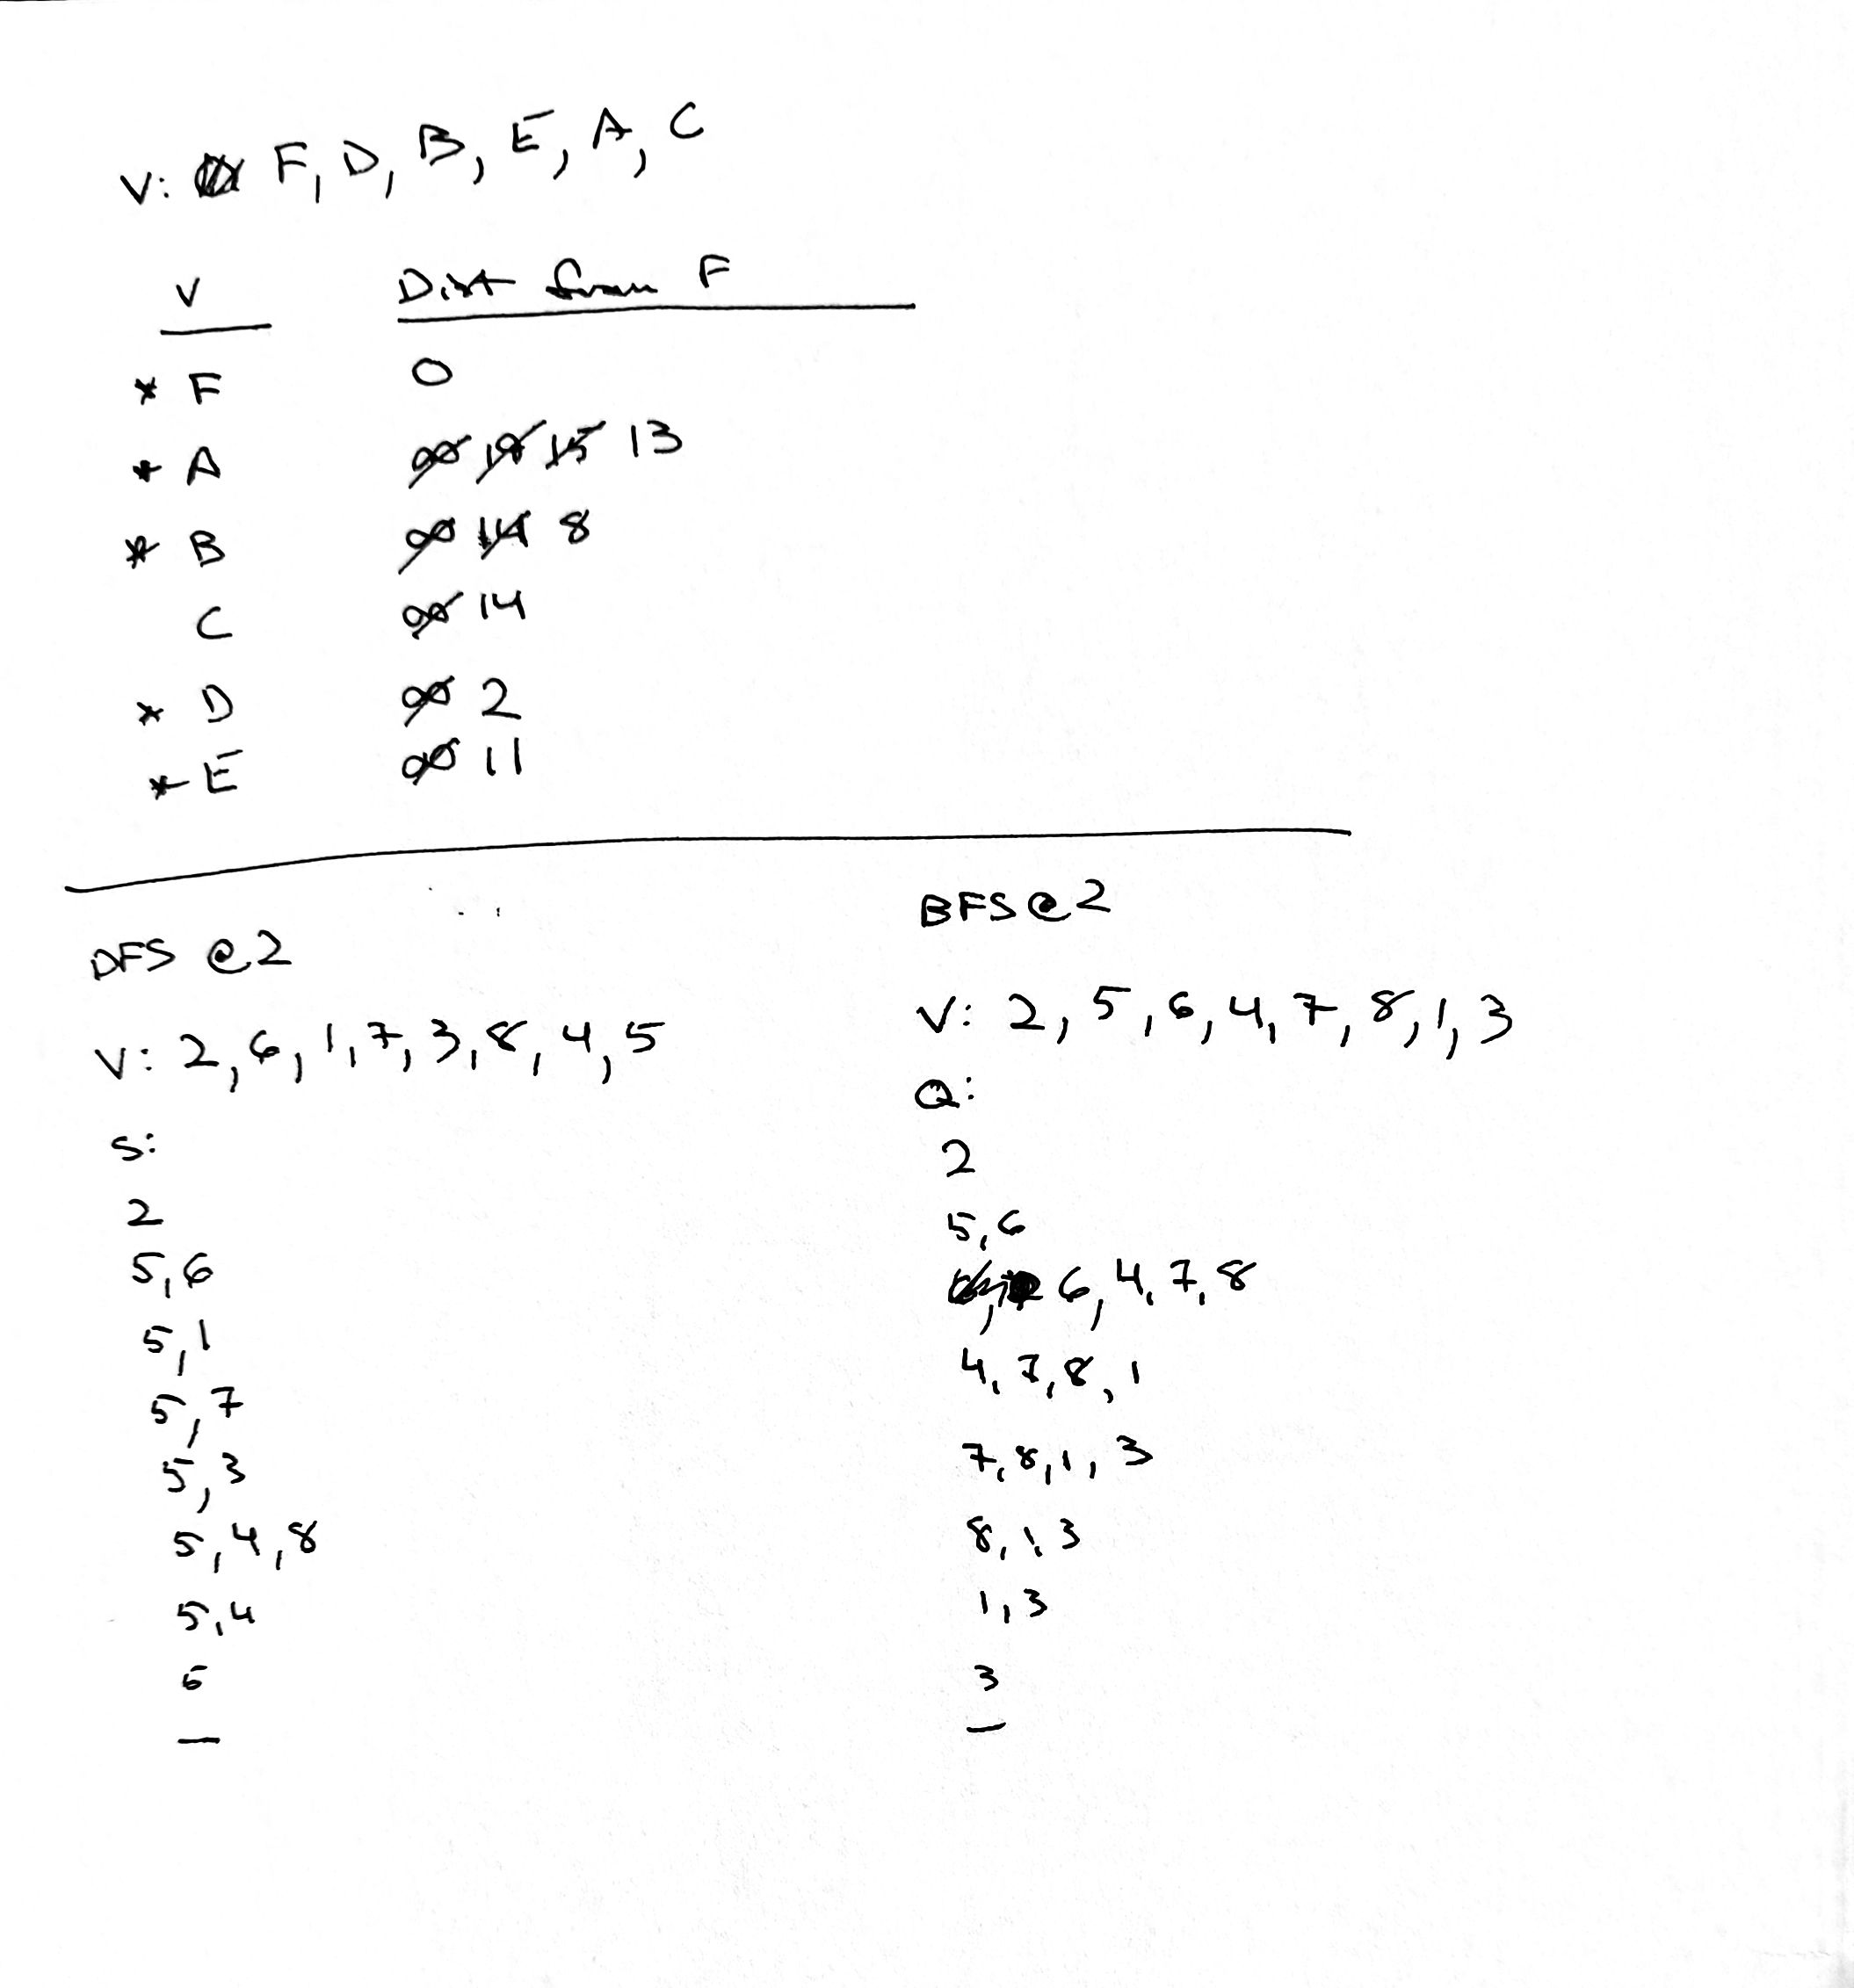 V: F, D, B, E, A, C
V Dist from F
* F 0
* A ∞ 15 13
* B ∞ 14 8
C ∞ 14
* D ∞ 2
* E ∞ 11
DFS @ 2
V: 2, 6, 1, 7, 3, 8, 4, 5
S:
2
5, 6
5, 1
5, 7
5, 3
5, 4, 8
5, 4
5
—
BFS @ 2
V: 2, 5, 6, 4, 7, 8, 1, 3
Q:
2
5, 6
6, 4, 7, 8
4, 7, 8, 1
7, 8, 1, 3
8, 1, 3
1, 3
3
—